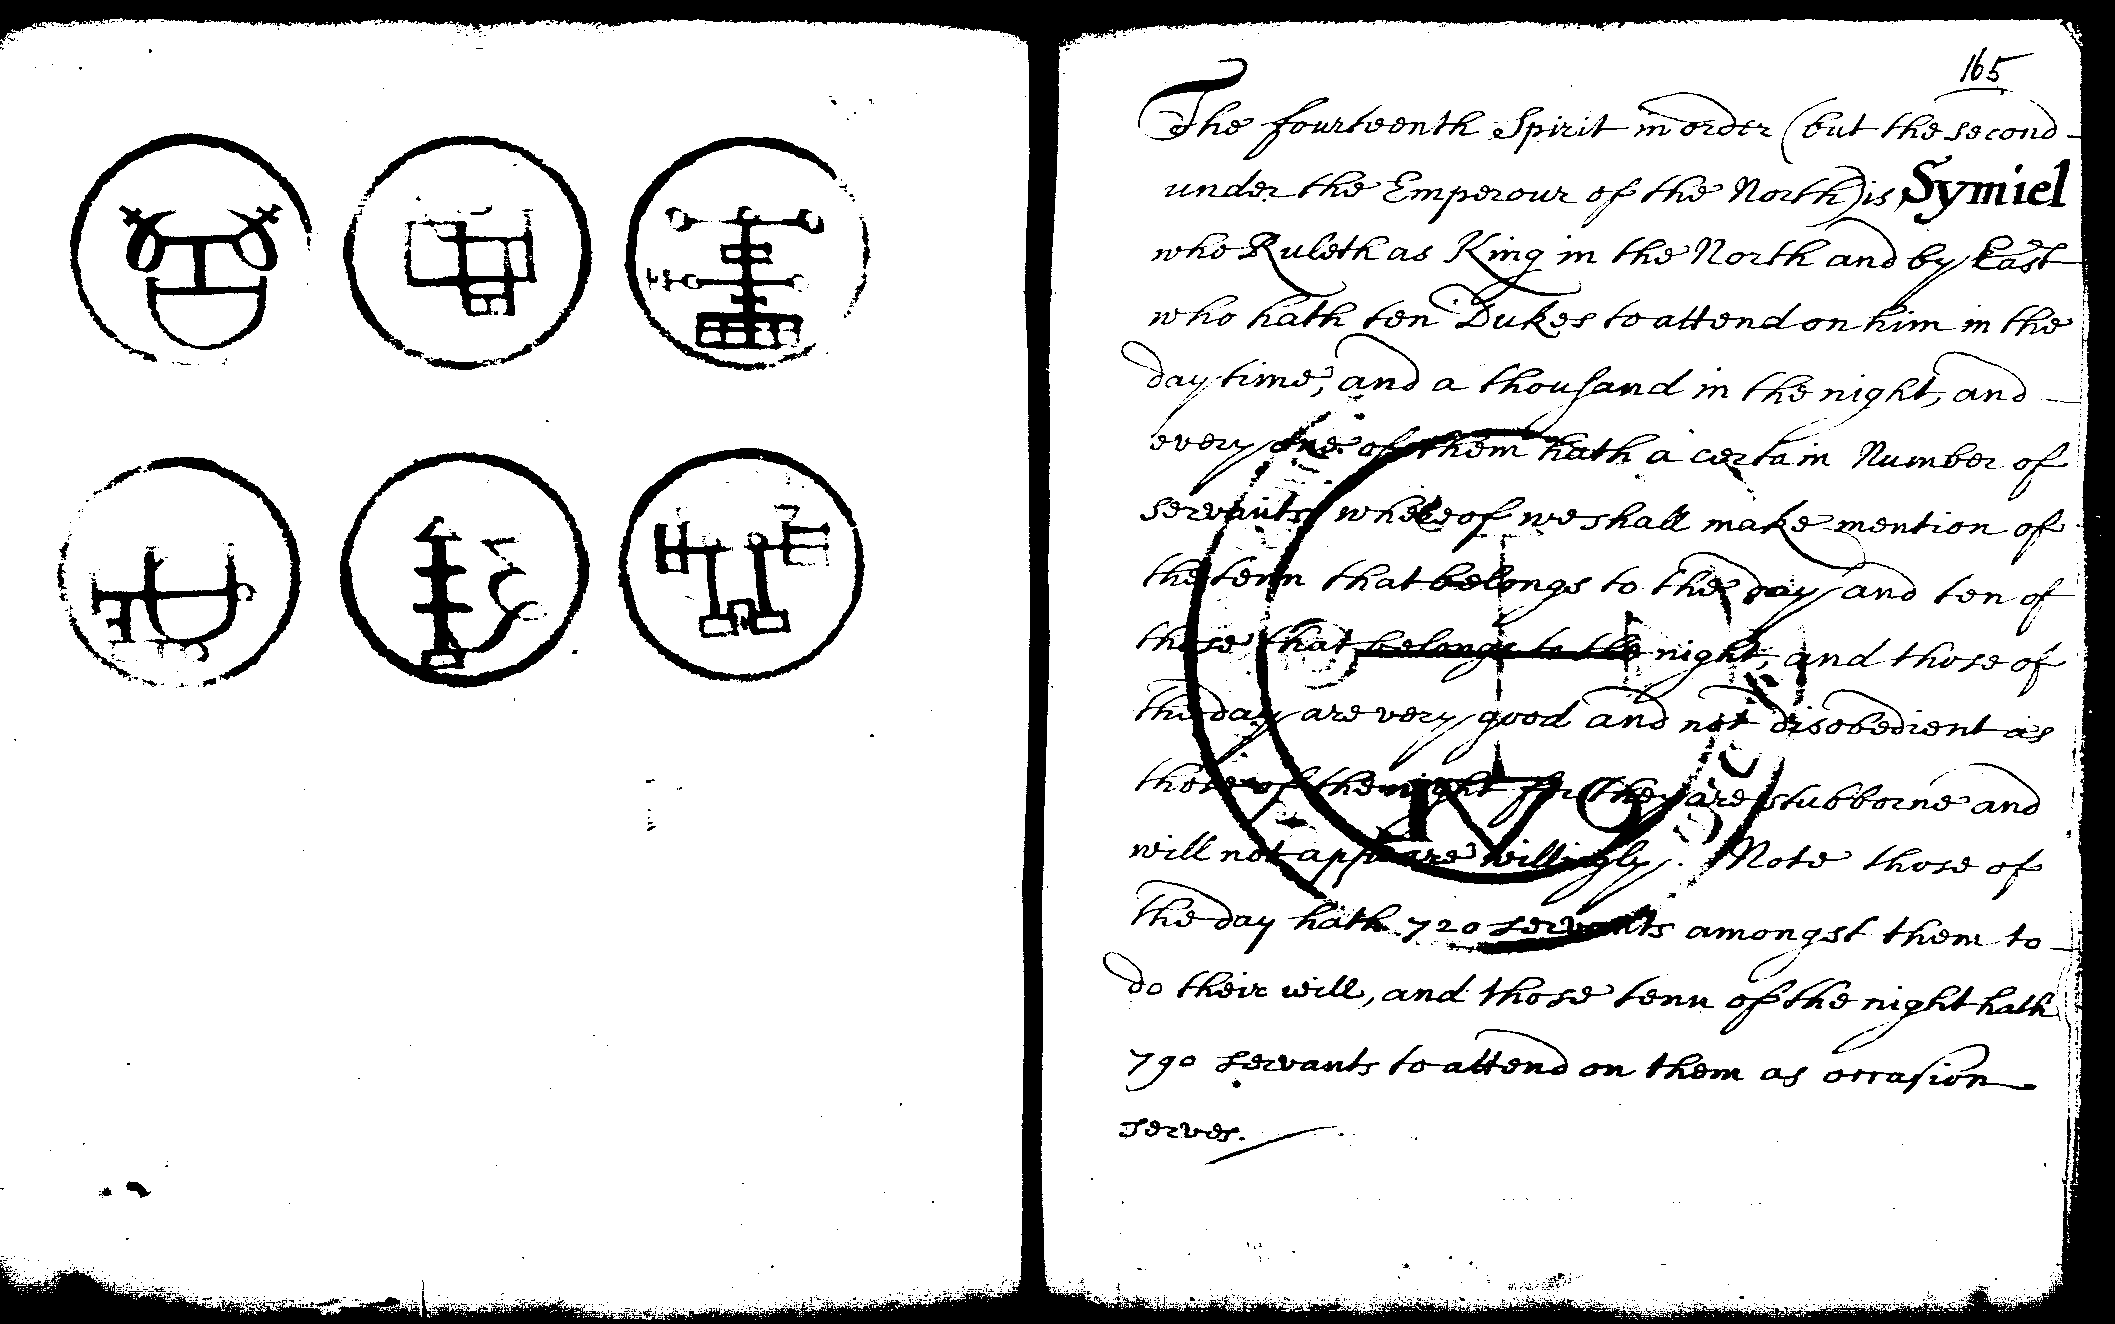 165
The fourteenth Spirit in order (but the second
under the Emperour of the North) is Symiel
who Ruleth as King in the North and by East
who hath ten Dukes to attend on him in the
day time, and a thousand in the night, and
every one of them hath a certain Number of
servants whereof we shall make mention of
the tenn that belongs to the day and ten of
those that belongs to the night, and those of
the day are very good and not disobedient as
those of the night for they are stubborne and
will not appeare willingly. Note those of
the day hath 720 servants amongst them to
do their will, and those tenn of the night hath
790 servants to attend on them as occasion
serves.